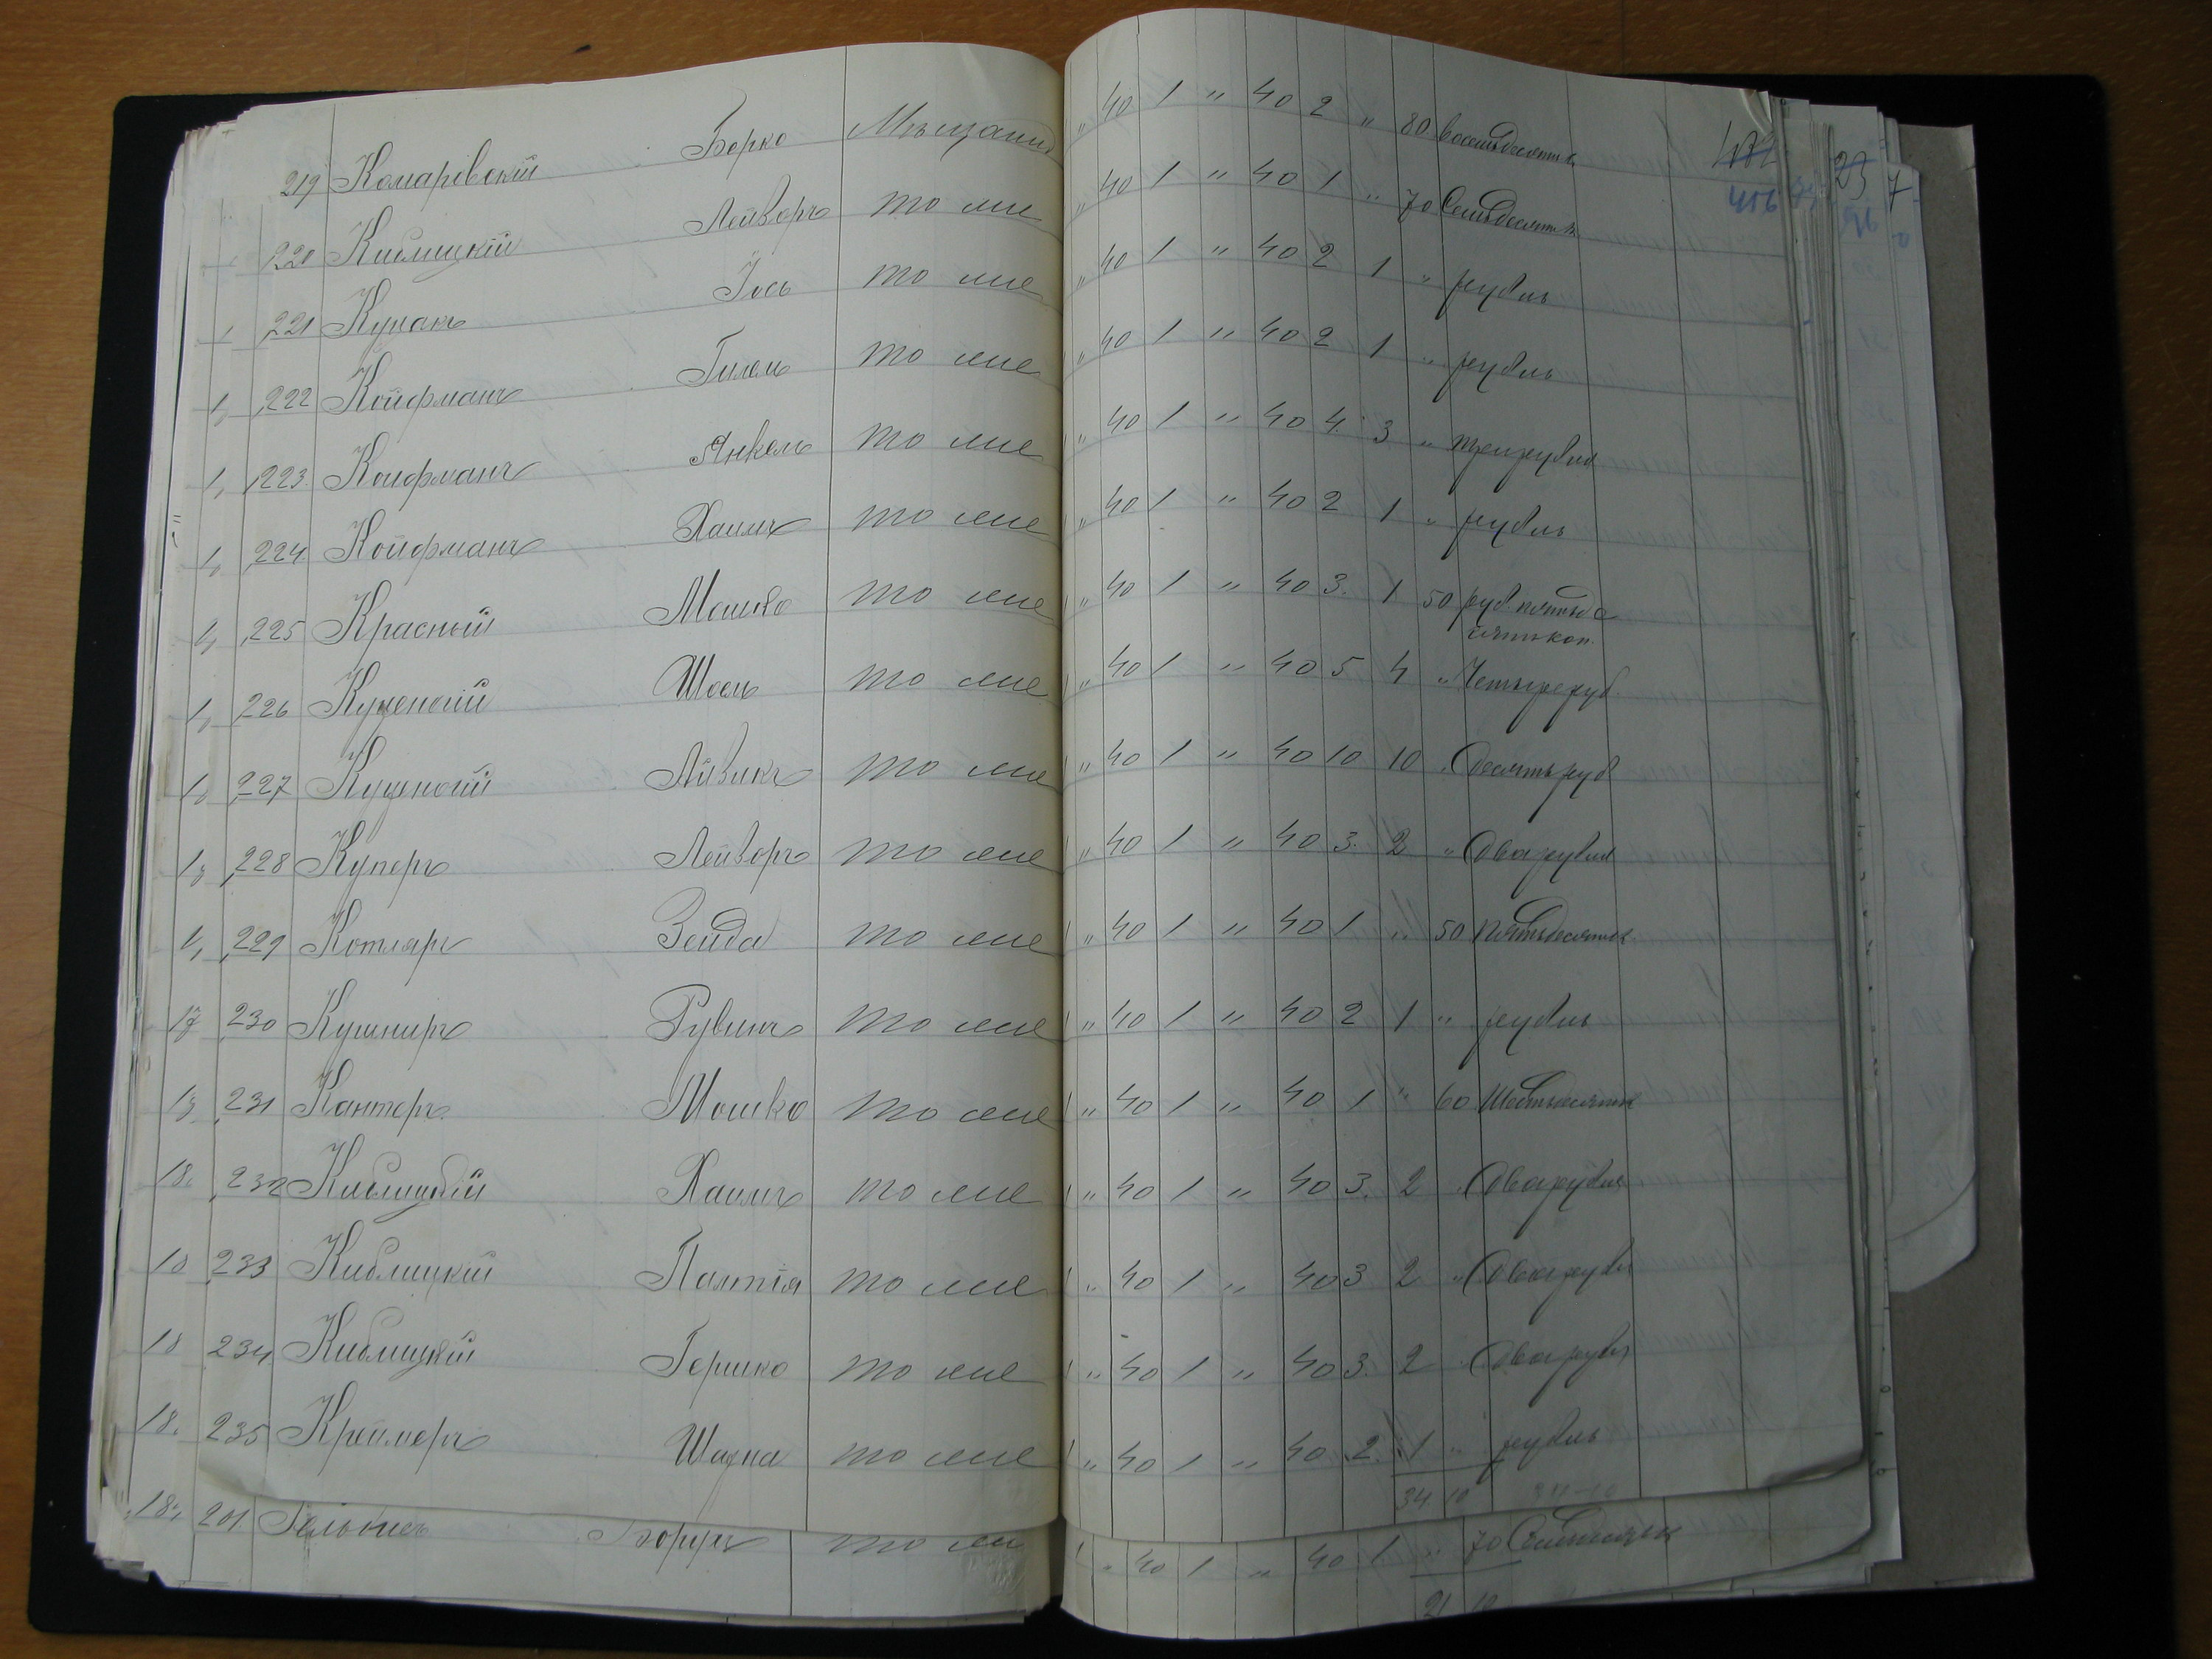 219 Комаровскій Борко Мѣщанин „ 40 1 „ 40 2 „ 80 восемьдесятъ
220 Киблицкій Лейворъ то же „ 40 1 „ 40 1 „ 70 Семьдесятъ
221 Кунанъ Іось то же „ 40 1 „ 40 2 1 „ рубль
1 222 Койфманъ Гилель то же „ 40 1 „ 40 2 1 „ рубль
1 223 Койфманъ Янкель то же „ 40 1 „ 40 4 3 „ три рубля
1 224 Койфманъ Хаимъ то же „ 40 1 „ 40 2 1 „ рубль
1 225 Красный Мошко то же „ 40 1 „ 40 3 1 50 руб. пятьде
сятъ коп.
1 226 Куценогій то же „ 40 1 „ 40 5 4 „ Четыре руб
1 227 Куценогій Айзикъ то же „ 40 1 „ 40 10 10 „ Десять руб
1 228 Куперъ Лейворъ то же „ 40 1 „ 40 3 2 „ Два рубля
1 229 Котляръ Зейда то же „ 40 1 „ 40 1 „ 50 Пятьдесятъ
17 230 Кушниръ Рувинъ то же „ 40 1 „ 40 2 1 „ рубль
231 Канторъ Мошко то же „ 40 1 „ 40 1 „ 60 Шестьдесятъ
18 232 Киблицкій Хаимъ то же „ 40 1 „ 40 3 2 „ Два рубля
18 233 Киблицкій Палтія то же „ 40 1 „ 40 3 2 „ Два рубл
18 234 Киблицкій Гершко то же „ 40 1 „ 40 3 2 „ Два рубл
18 235 Креймеръ Шазна то же „ 40 1 „ 40 2 1 „ рубль
34 10 34-10
18 201 Борухъ то же „ 40 1 „ 40 1 „ 70 Семьдесятъ
21 10